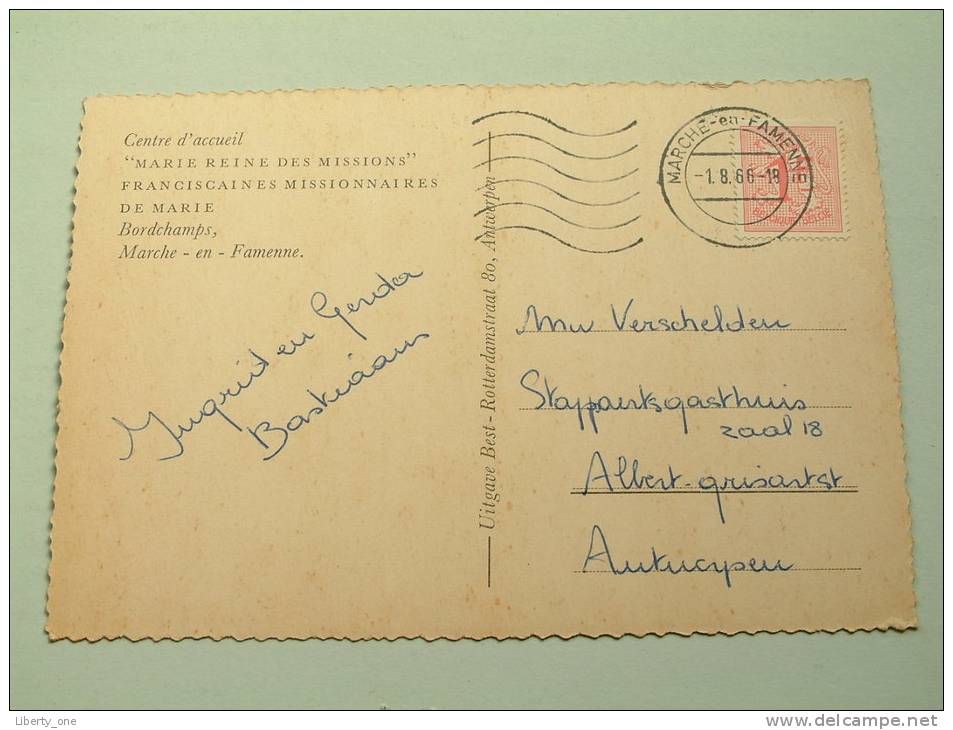 Centre d'accueil
"MARIE REINE DES MISSIONS"
FRANCISCAINES MISSIONNAIRES
DE MARIE
Bordchamps,
Marche - en - Famenne.
Ingrid en Gerda
Bastiaans
Uitgave Best - Rotterdamstraat 80, Antwerpen
MARCHE-en-FAMENNE
-1.8.66-18
BELGIE
Mw Verschelden
Stappaertsgasthuis
zaal 18
Albert-grisartst
Antwerpen
Liberty_one
www.delcampe.net